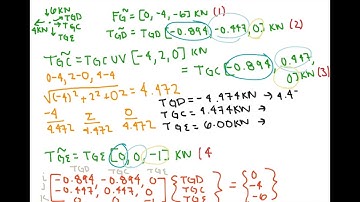 ↓6KN
TGD
TGC
4KN
TGE
FG̃ = [0, -4, -6] KN (1)
TG̃D = TGD [-0.894, -0.447, 0] KN (2)
TG̃C = TGC UV [-4, 2, 0] KN
= TGC [-0.894, 0.447, 0] KN (3)
0-4, 2-0, 4-4
√(-4)² + 2² + 0² = 4.472
-4/4.472 2/4.472 0/4.472
TGD = -4.474KN → 4.4
TGC = 4.474KN →
TGE = 6.00KN →
TG̃E = TGE [0, 0, -1] KN (4
TGD TGC TGE
[-0.894, -0.894, 0] {TGD} = {0}
[-0.447, 0.447, 0] {TGC} {-4}
{TGE} {-6}